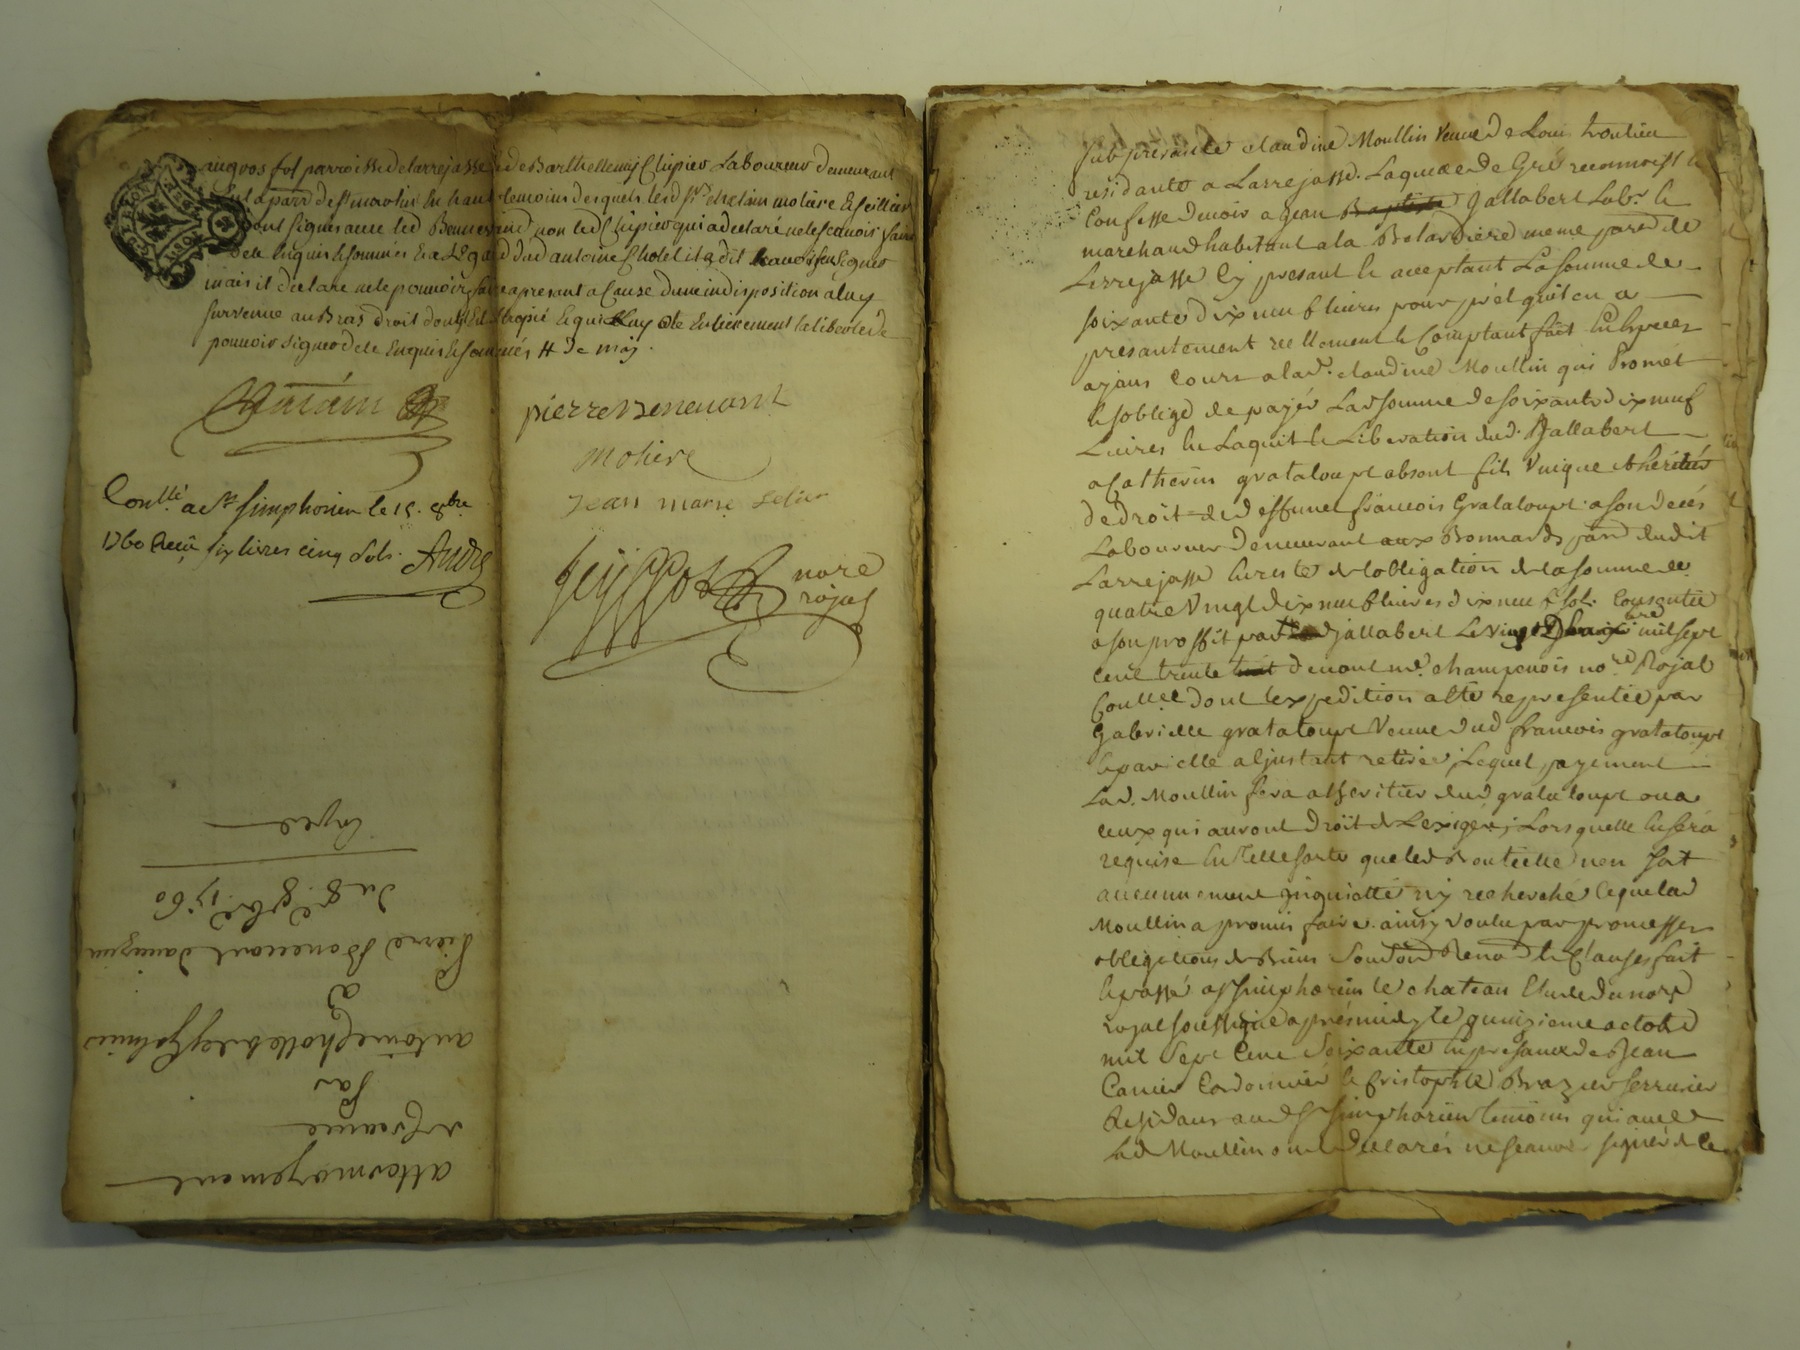 au gros fol parroisse de larrejasse et de Barthellemy Chipier Laboureur demeurant
en la parr de st martin en haut temoins desquels led sr chelain moliere et seillier
ont signés avec led Bennevend non led Chipier qui a declaré ne le scavoir faire
de ce enquis et sommés et a l'egard dud antoine Chollet il a dit scavoir signer
mais il declare ne le pouvoir faire a present a cause d'une indisposition a luy
survenue au Bras droit dont est estropié et qui luy ote entierement la liberté de
pouvoir signer de ce enquis et sommés # de moy.
pierre Benevant
moliere
jean marie selier
nore
rojal
Conllé. a St simphorien le 15. 8bre.
1760 Reçu six livres cinq sols. André
attermoyement
de creance
par
antoine Chollet
a
Pierre Bonnevant
du 8e 8bre 1760
Expedié
fut presante claudine Moullin Veuve de Louis
residante a Larrejasse. Laquelle de Gré reconnoist et
Confesse devoir a jean Baptiste jallabert Labr. et
marchand habitant a la Bolardiere meme parr de
Lerrejasse Cy presant et acceptant La somme de
soixante dix neuf livres pour prêt qu'il en a
presantement reellement et Comptant fait En Especes
ayans Cours a lad. claudine Moullin qui Promet
et s'oblige de payér Lad somme de soixante dix neuf
Livres En Laquit et Liberation dud. Jallabert
a Catherin grataloupt absent fils Vnique et heritier
de droit de deffunct francois Grataloupt a son decés
Laboureur demeurant aux Bonnards parr dudit
Larrejasse En reste de l'obligation de la somme de
quatre Vingt dix neuf livres dix neuf sol. Consentie
a son proffit par led jallabert Le Vingt mil sept
cent trente devant me. champenois nore Rojal
Conllée dont l'expedition a eté representée par
Gabrielle grataloupt Veuve dud francois grataloupt
et par elle a l'justant retirée; Lequel payement
Lad. Moullin fera a l'heritier dud grataloupt ou a
ceux qui auront droit de L'exiger; Lorsquelle En sera
requise En telle sorte que led n'en soit
aucunement inquietté ny recherché Ce que lad
Moullin a promis faire. ainsy voulu par promesses
obligations de Biens Soum Renon et Clauses fait
et passé a st simphorien le chateau Etude du nore
royal soussigné aprés midy le quinzieme actobre
mil sept Cent Soixante En presance de Jean
Canier Cordonnier et Cristophle Brazier serrurier
Residans aud St simphorien temoins qui avec
Lad Moullin ont declarés ne scavoir signér de Ce